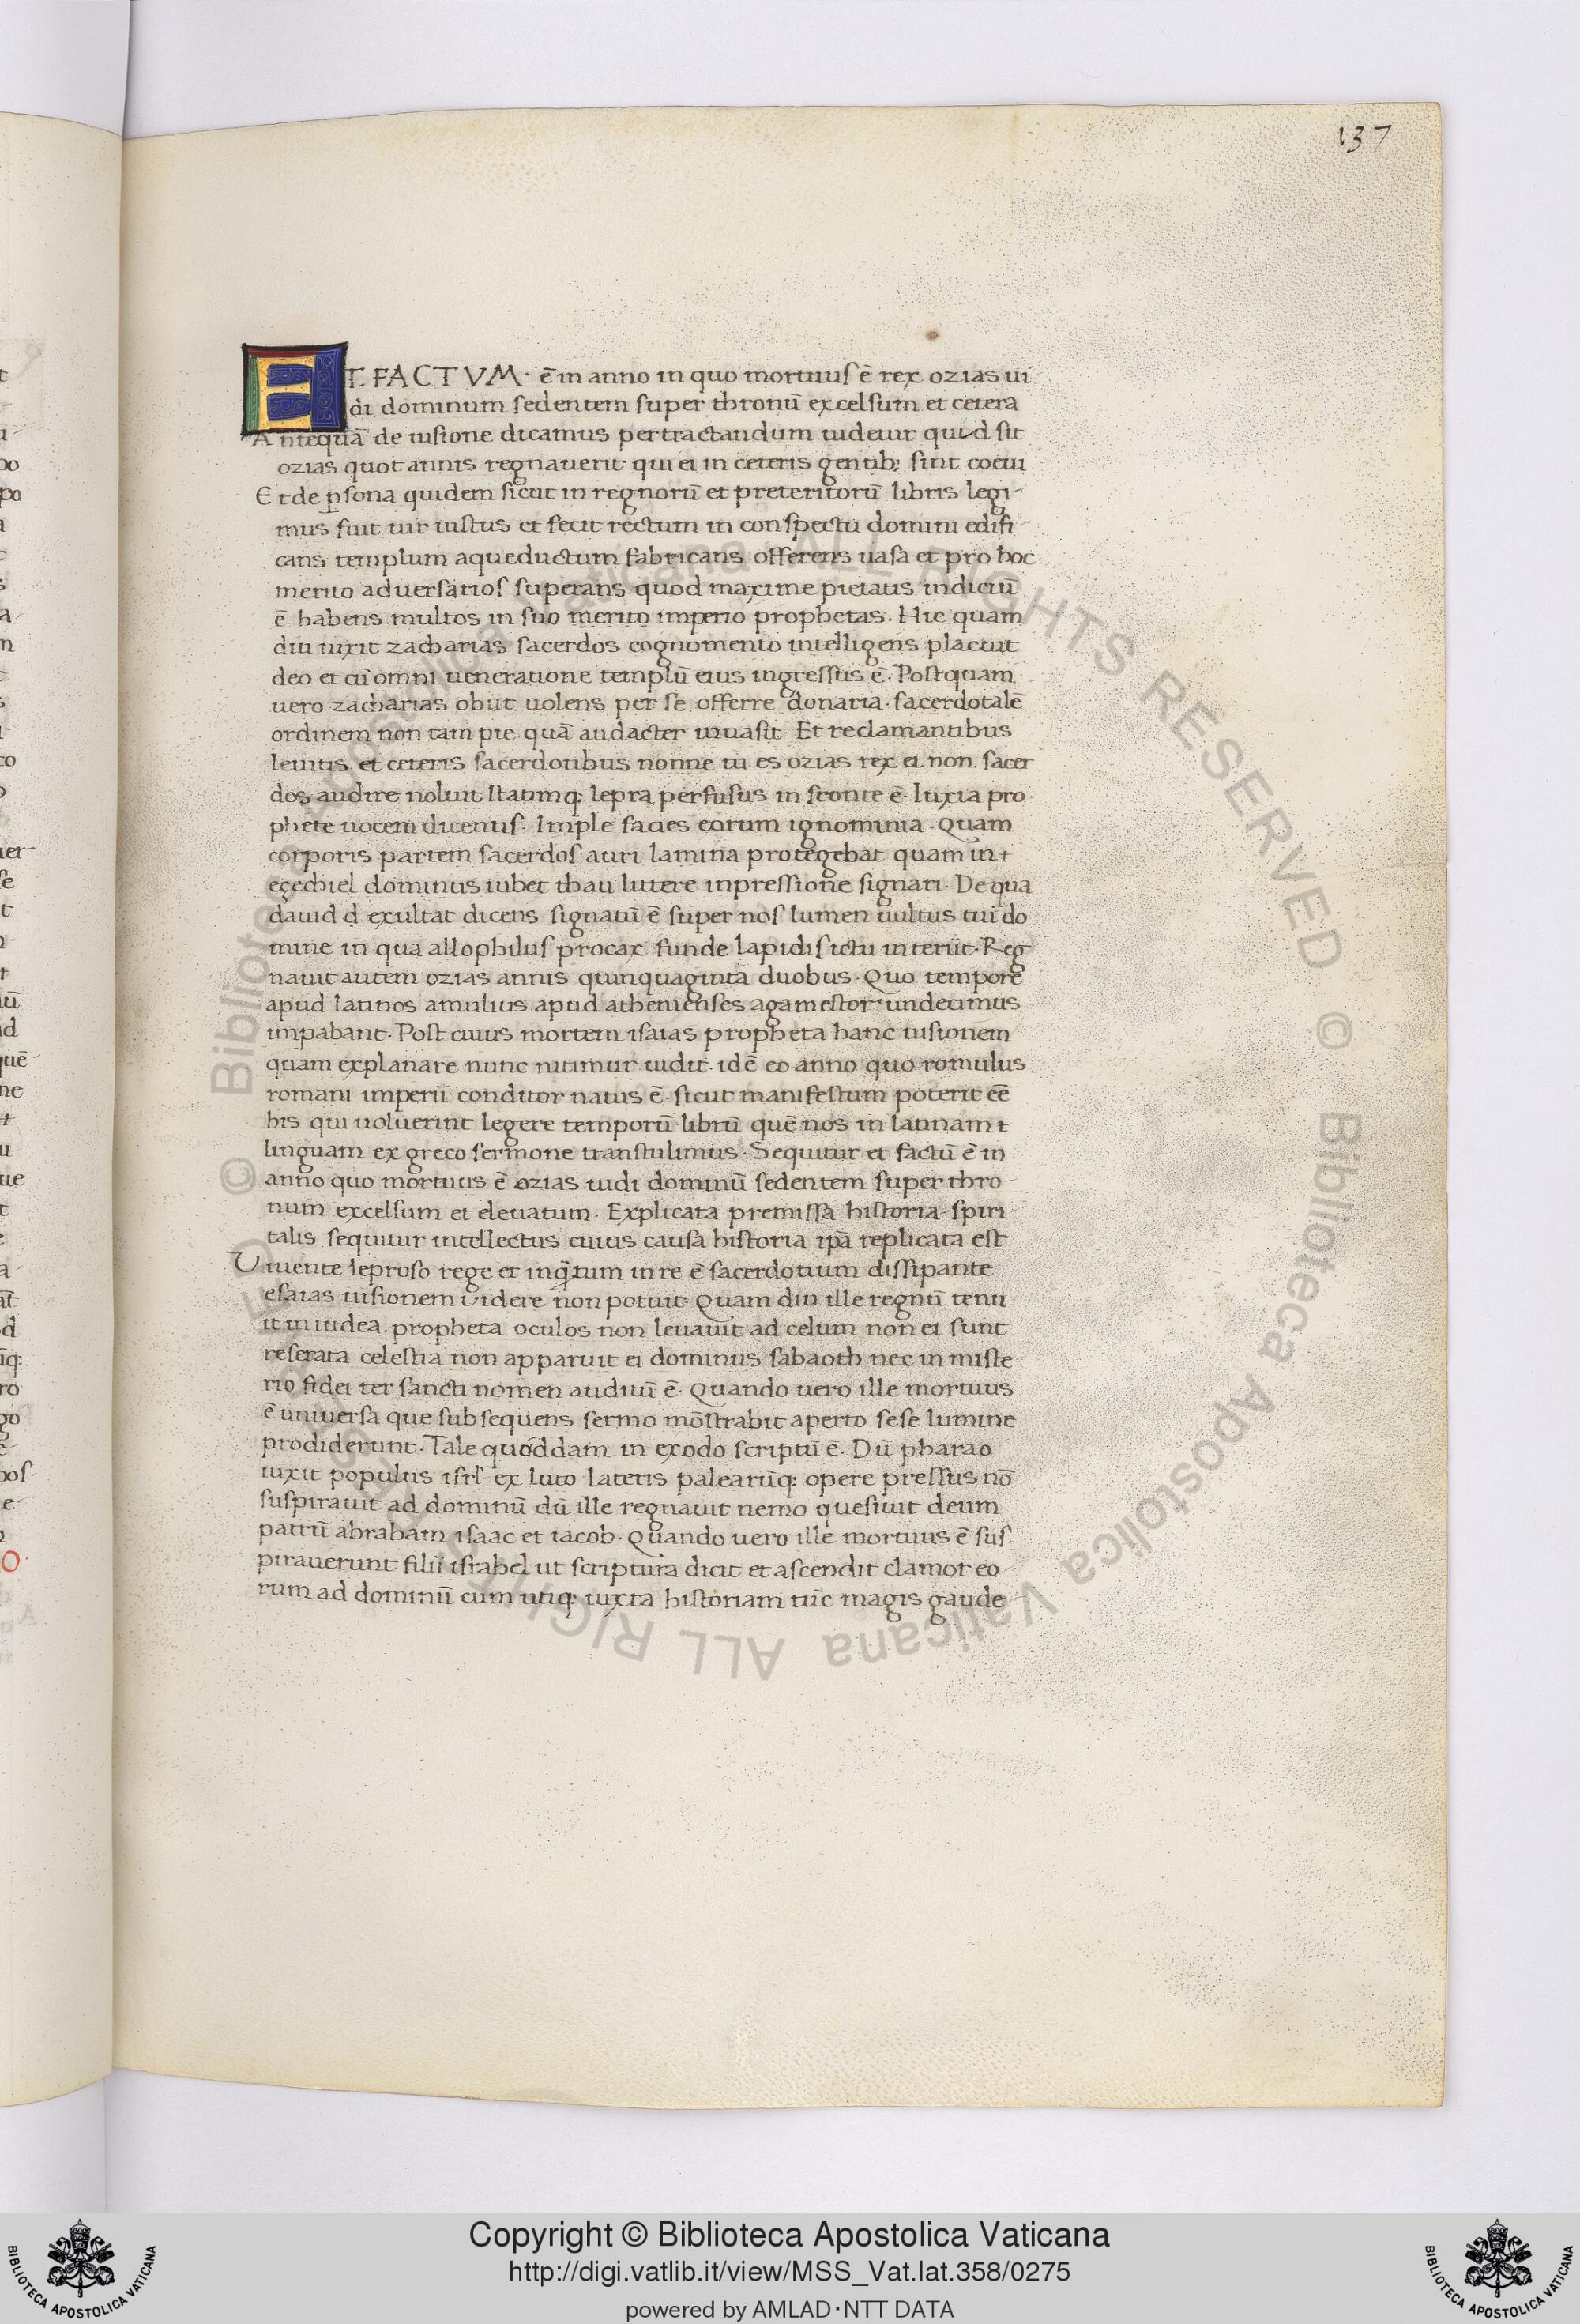 137
ET FACTVM · ē in anno in quo mortuus ē rex ozias ui
di dominum sedentem super thronū excelsum et cetera
Antequā de uisione dicamus pertractandum uidetur quid sit
ozias quot annis regnauerit qui ei in ceteris gentib; sint coeui
Et de ꝑsona quidem sicut in regnorū et preteritorū libris legi-
mus fuit uir iustus et fecit rectum in conspectu domini edifi
cans templum aqueductum fabricans offerens uasa et pro hoc
merito aduersarios superans quod maxime pietatis indiciū
ē habens multos in suo merito imperio prophetas. Hic quam
diu uixit zacharias sacerdos cognomento intelligens placuit
deo et cū omni ueneratione templū eius ingressus ē. Postquam
uero zacharias obiit uolens per se offerre donaria. sacerdotalē
ordinem non tam pie quā audacter inuasit. Et reclamantibus
leuitis et ceteris sacerdotibus nonne tu es ozias rex et non sacer
dos audire noluit statimq; lepra perfusus in fronte ē. Iuxta pro
phete uocem dicentis. Imple facies eorum ignominia. Quam
corporis partem sacerdos auri lamina protegebat quam in
eçechiel dominus iubet thau littere inpressione signari. De qua
dauid d exultat dicens signatū ē super nos lumen uultus tui do
mine in qua allophilus procax funde lapidis ictu interiit. Reg
nauit autem ozias annis quinquaginta duobus. Quo tempore
apud latinos amulius apud athenienses agamestor undecimus
imꝑabant. Post cuius mortem isaias propheta hanc uisionem
quam explanare nunc nitimur uidit. idē eo anno quo romulus
romani imperii conditor natus ē. sicut manifestum poterit eē
his qui uoluerint legere temporū librū quē nos in latinam
linguam ex greco sermone transtulimus. Sequitur et factū ē in
anno quo mortuus ē ozias uidi dominū sedentem super thro
num excelsum et eleuatum. Explicata premissa historia spiri
talis sequitur intellectus cuius causa historia ipā replicata est
Viuente leproso rege et inq̄tum in re ē sacerdotium dissipante
esaias uisionem uidere non potuit Quam diu ille regnū tenu
it in iudea. propheta oculos non leuauit ad celum non ei sunt
reserata celestia non apparuit ei dominus sabaoth nec in miste
rio fidei ter sancti nomen auditū ē. Quando uero ille mortuus
ē uniuersa que subsequens sermo mōstrabit aperto sese lumine
prodiderunt. Tale quoddam in exodo scriptū ē. Dū pharao
uixit populus isrl' ex luto lateris palearūq; opere pressus nō
suspirauit ad dominū dū ille regnauit nemo quesiuit deum
patrū abraham isaac et iacob. Quando uero ille mortuus ē sus
pirauerunt filii israhel ut scriptura dicit et ascendit clamor eo
rum ad dominū cum utiq; iuxta historiam tūc magis gaude
Copyright © Biblioteca Apostolica Vaticana
http://digi.vatlib.it/view/MSS_Vat.lat.358/0275
powered by AMLAD·NTT DATA
BIBLIOTECA APOSTOLICA VATICANA
BIBLIOTECA APOSTOLICA VATICANA
© Biblioteca Apostolica Vaticana ALL RIGHTS RESERVED © Biblioteca Apostolica Vaticana ALL RIGHTS RESERVED